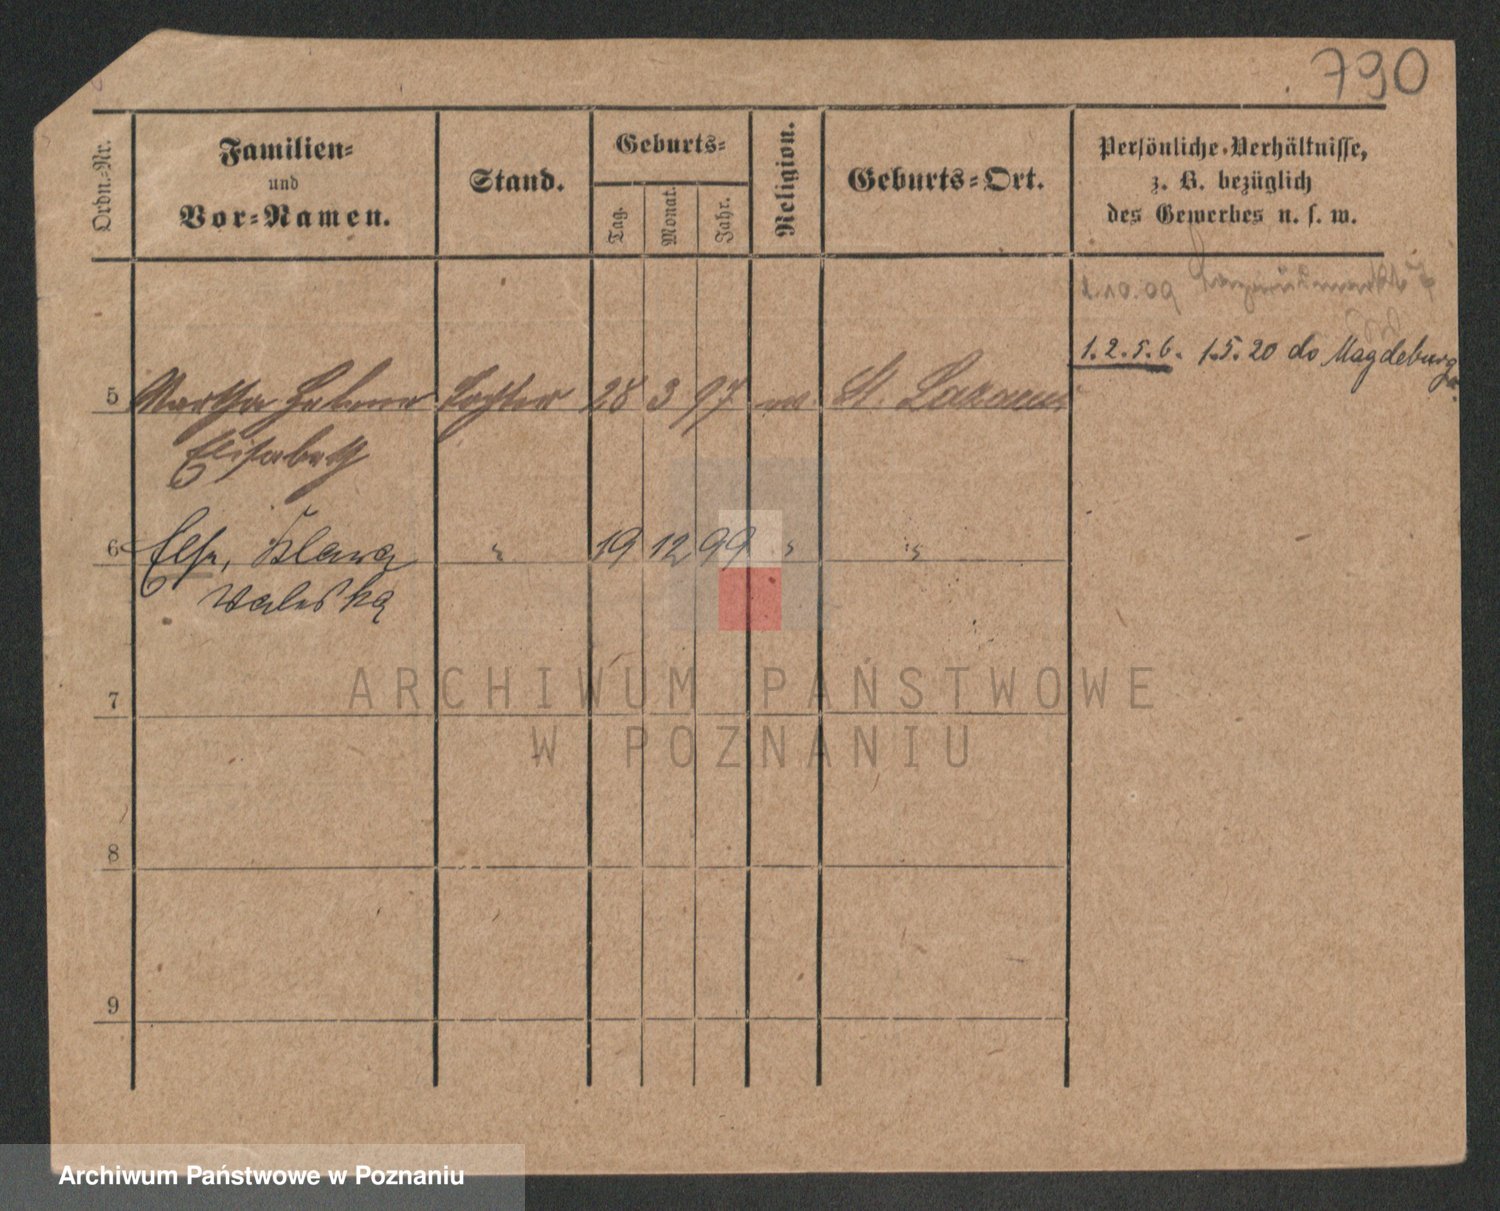 790
Ordn.-Nr.
Familien-
und
Vor-Namen.
Stand.
Geburts-
Tag.
Monat.
Jahr.
Religion.
Geburts-Ort.
Persönliche Verhältnisse,
z. B. bezüglich
des Gewerbes u. s. w.
1.10.09
1.2.5.6. 1.5.20 do Magdeburg
5 Martha Helene Tochter 28 3 97 St. Lazarus
Elisabeth
6 Else, Klara " 19 12 99 " "
Waleska
7
8
9
ARCHIWUM PAŃSTWOWE
W POZNANIU
Archiwum Państwowe w Poznaniu